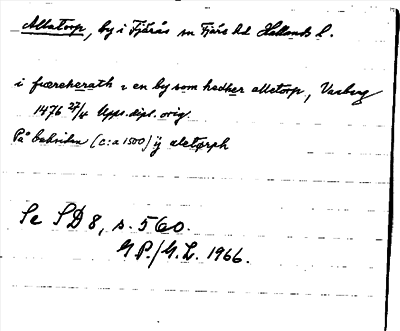 Alletorp, by i Fjärås sn Fjäre hd Hallands l.
i fiærekerath : en by som hedher alletorp, Varberg
1476 27/4 Upps. dipl. orig.
På baksidan (c:a 1500) ÿ aletørph
Se SD 8, s. 560.
G P./G.L. 1966.